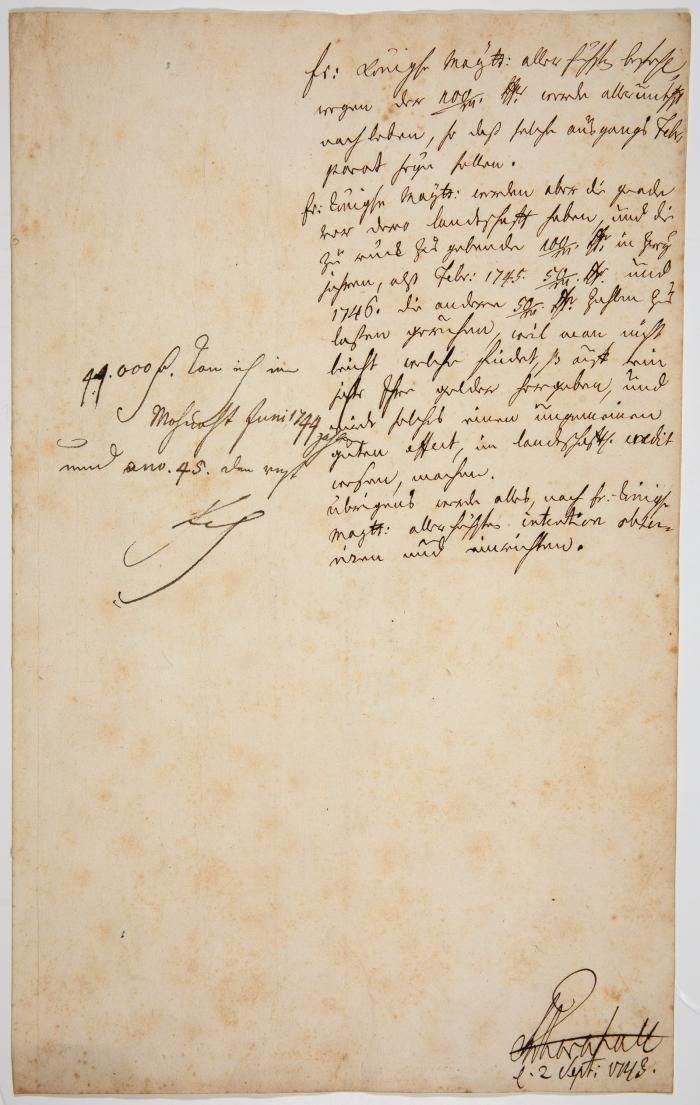 Er: Königl: Mayt: allerhöchsten befehl
wegen der 100/m. rthr. werde alleruntthgst
nachleben, so daß solche ausgangs Febr.
parat seyn sollen.
Er: Königl: Mayt: werden aber die gnade
vor dero landschafft haben, und die
zu rück zu gebende 100/m. rthr. in zwey
jahren, alß Febr: 1745. 50/m. rthr. und
1746. die andere 50/m. rthr. zahlen zu
laßen geruhen, weil man nicht
leicht welche findet, so auf ein
jahr Ihre gelder hergeben, und
wird solches einen ungemeinen
guten effect, im landschafftl. credit
wesen, machen.
übrigens werde alles, nach Er: Königl:
Maytt: allerhöchsten intention obser-
viren und einrichten.
44.000 f. kan ich im
Mohnaht Juni 1744 zahlen
und ano. 45. den rest
Fch
2 Sept: 1743.